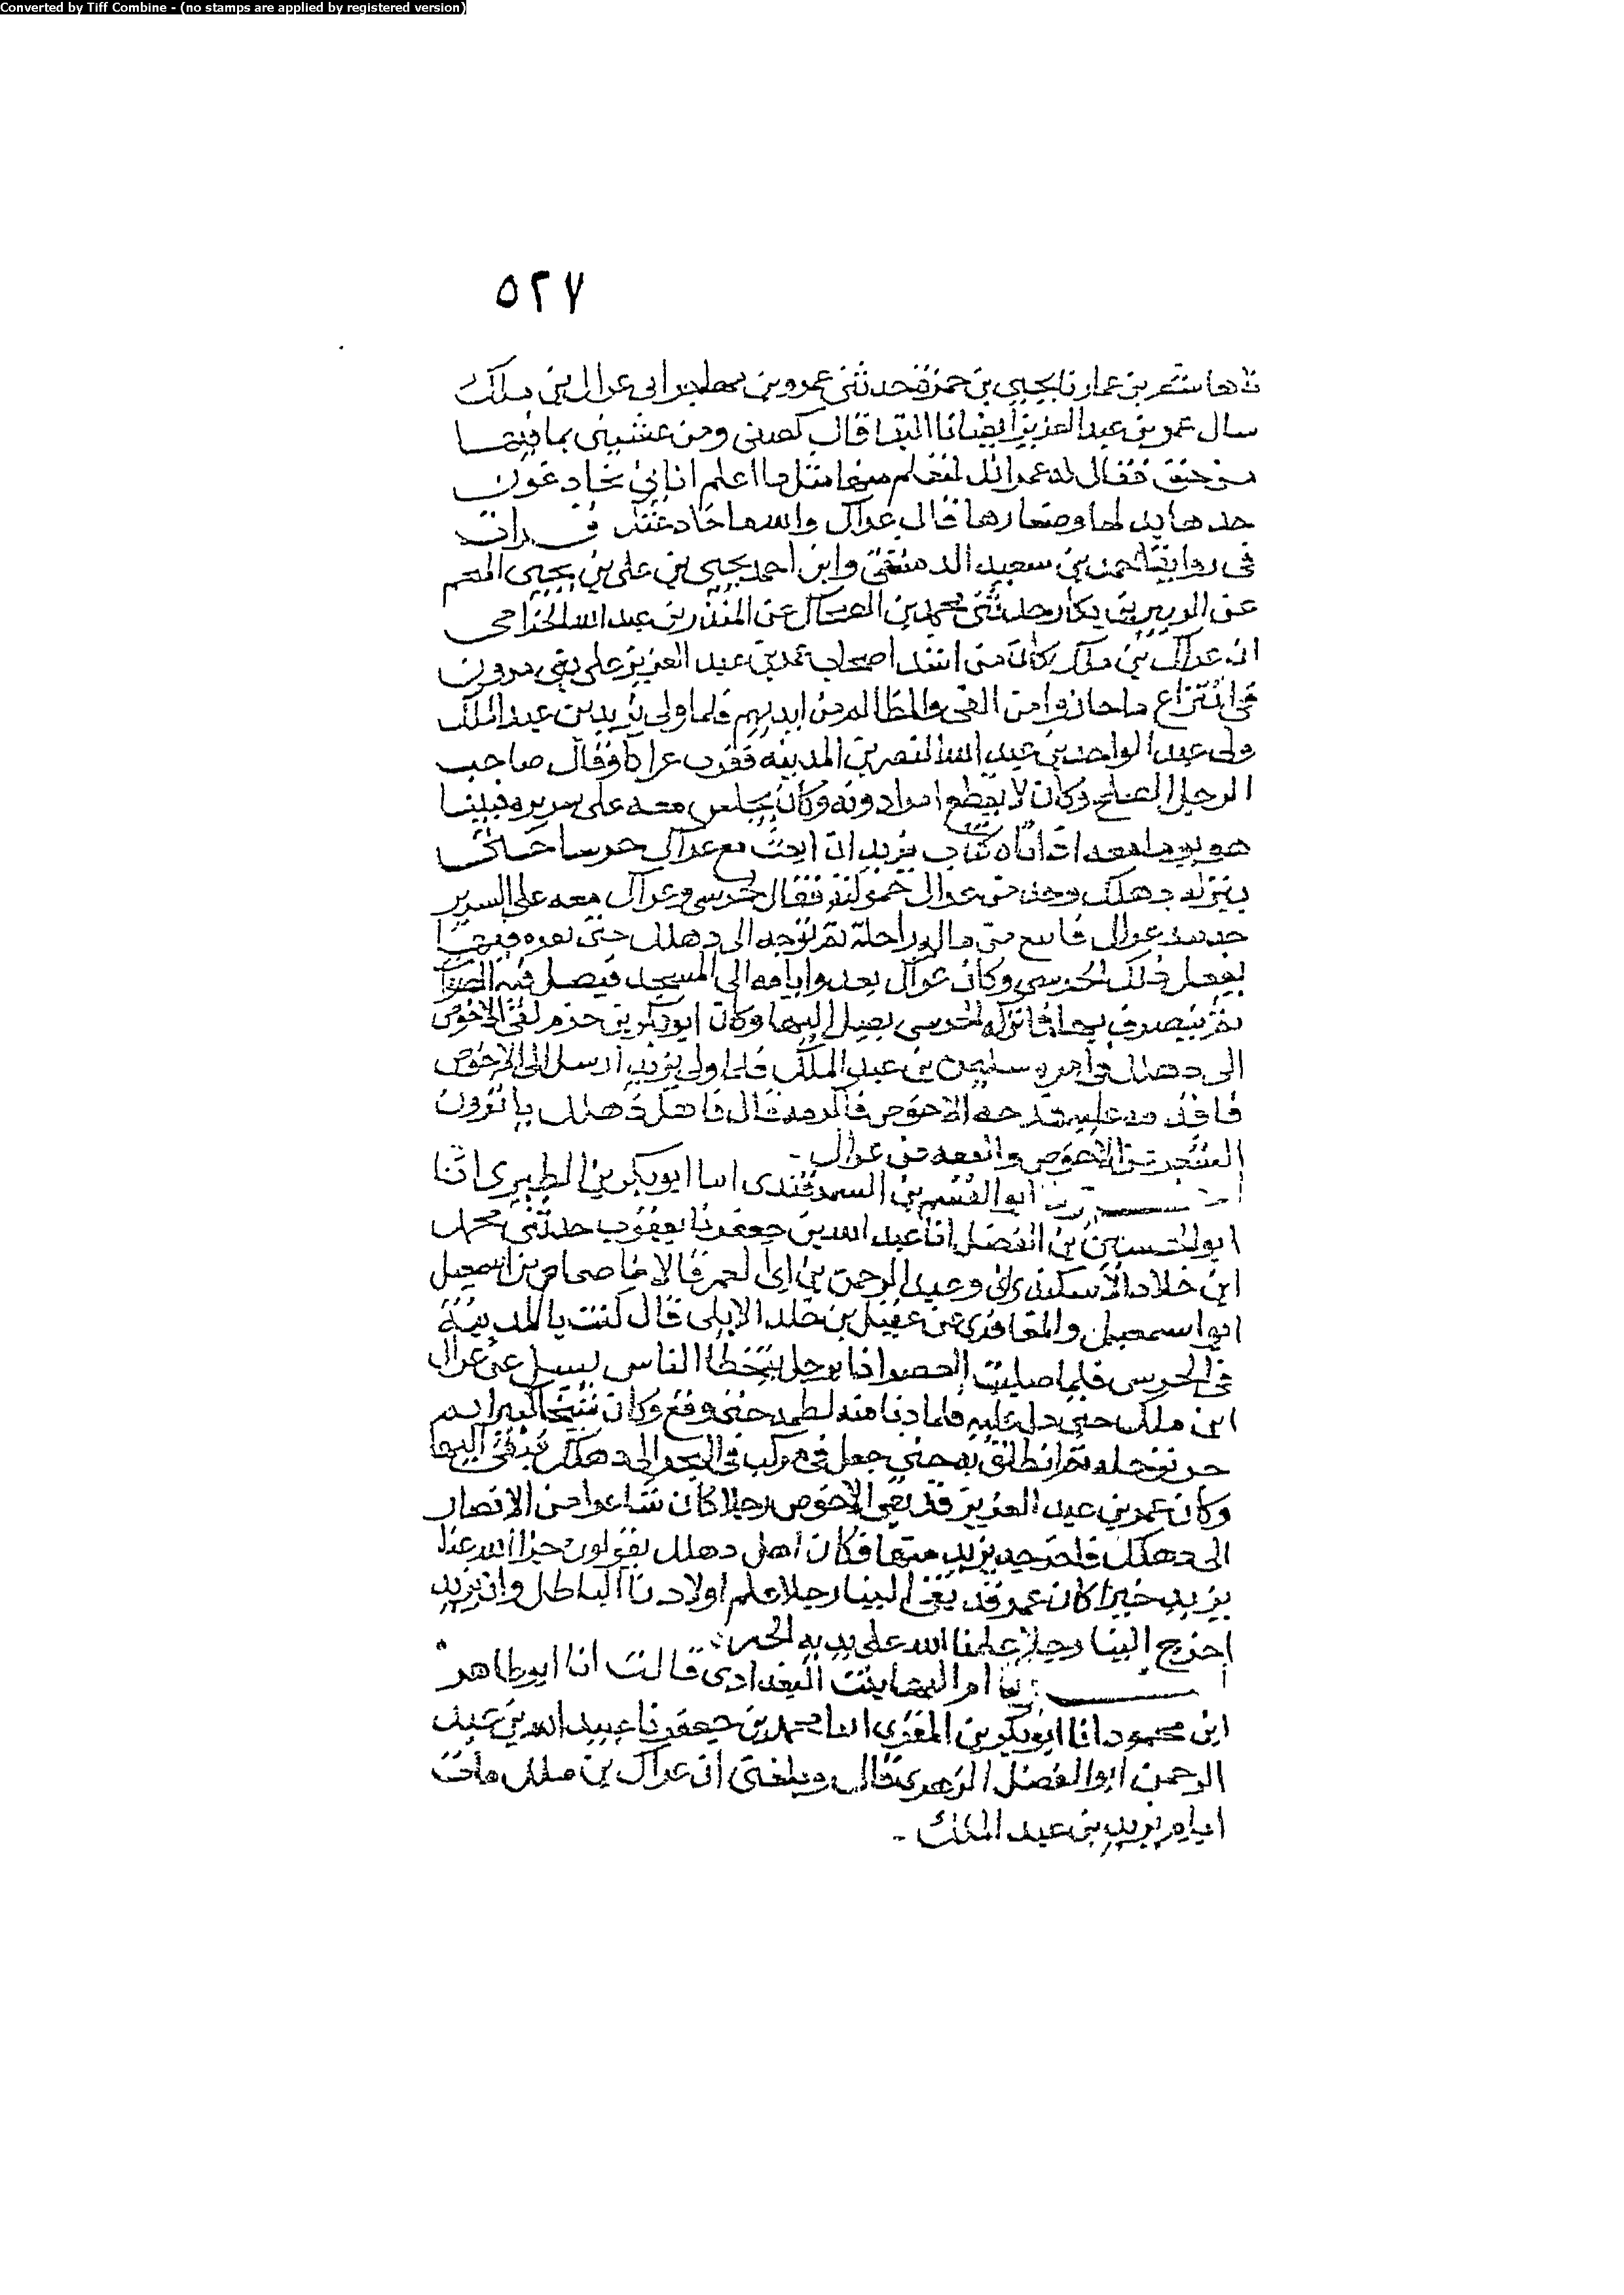 Converted by Tiff Combine - (no stamps are applied by registered version)
٥٢٧
نا هاشم بن عمار نا يحيى بن حمزة حدثني عمرو بن مهاجر ان عراك بن ملك
سال عمر بن عبد العزيز ايضا قال ومن بما فيها
من فقال له عمر انك لتعلم منها مثل ما اعلم اياي تخادعون
خذها بذلها وصغارها قال عراك والله ما خادعتك قرات
في سعيد الدمشقي وابن احمد يحيى بن علي بن يحيى المنجم
عن الزبير بن بكار حدثني محمد بن الضحاك عن المنذر بن عبد الله الحزامي
ان عراك بن ملك كان من اشد اصحاب عمر بن عبد العزيز على بني مروون
في انتزاع ما حازوا من الفى والمظالم من ايديهم فلما ولي يزيد بن عبد الملك
ولى عبد الواحد بن عبد الله النصري المدينة فقرب عراكا وقال صاحب
الرجل الصلح وكان لا يقطع امرا دونه وكان يجلس معه على سريره فبينا
هو يوما معه اذ اتاه كتاب يزيد ان ابعث مع عراك حرسا حتى
ينزله دهلك وخذ من عراك حمولته فقال لحرسي وعراك معه على السرير
خذ بيد عراك فابتع من ماله راحلة ثم توجه الى دهلك حتى تقره فيها
ففعل ذلك الحرسي وكان عراك يغدوا بامه الى المسجد فيصل
ثم ينصرف بها فما تركه الحرسي يصل اليها وكان ابو بكر بن حزم نفى الاحوص
الى دهلك في امرة سليمن بن عبد الملك فلما ولي يزيد ارسل الى الاحوص
فاقدمه عليه فمدحه الاحوص فاكرمه قال فاهل دهلك ياثرون
الشعر عن الاحوص والفقه عن عراك -
ابو القسم بن السمرقندي انا ابو بكر بن الطبري انا
ابو الحسين بن الفضل انا عبد الله بن جعفر نا يعقوب حدثني محمد
ابن خلاد الاسكندراني وعبد الرحمن بن ابي الغمر قالا نا ضمام بن اسمعيل
ابو اسمعيل المعافري عن عقيل بن خلد الايلي قال كنت بالمدينة
في الحرس فلما صليت العصر اذا برجل يتخطا الناس يسل عن عراك
ابن ملك حتى دل عليه فلما دنا منه لطمه حتى وقع وكان شيخا كبيرا ثم
جر برجله ثم انطلق به حتى جعل في مركب في البحر الى دهلك نفي اليها
وكان عمر بن عبد العزيز قد نفى الاحوص رجلا كان شاعرا من الانصار
الى دهلك فاخرجه يزيد منها فكان اهل دهلك يقولون جزا الله عنا
يزيد خيرا كان عمر قد نفى الينا رجلا علم اولادنا الباطل وان يزيد
اخرج الينا رجلا علمنا الله على يديه الخير
ام البها بنت البغدادي قالت انا ابو طاهر
ابن محمود انا ابو بكر بن المقري انا محمد بن جعفر نا عبيد الله بن عبد
الرحمن ابو الفضل الزهري قال وبلغني ان عراك بن ملك مات
ايام يزيد بن عبد الملك -